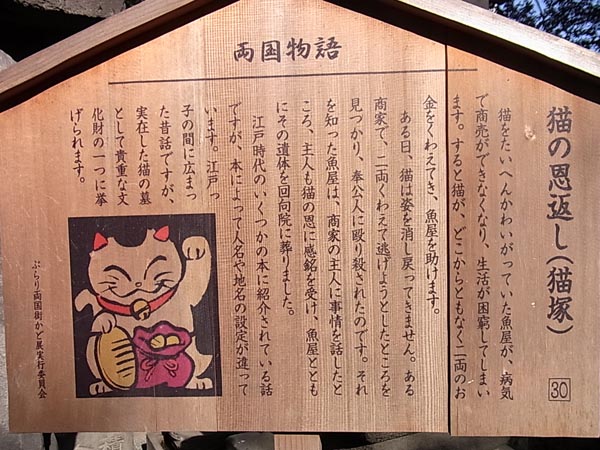 両国物語
猫の恩返し(猫塚)
30
猫をたいへんかわいがっていた魚屋が、病気
で商売ができなくなり、生活が困窮してしまい
ます。すると猫が、どこからともなく二両のお
金をくわえてき、魚屋を助けます。
ある日、猫は姿を消し戻ってきません。ある
商家で、二両くわえて逃げようとしたところを
見つかり、奉公人に殴り殺されたのです。それ
を知った魚屋は、商家の主人に事情を話したと
ころ、主人も猫の恩に感銘を受け、魚屋ととも
にその遺体を回向院に葬りました。
江戸時代のいくつかの本に紹介されている話
ですが、本によって人名や地名の設定が違って
います。江戸っ
子の間に広まっ
た昔話ですが、
実在した猫の墓
として貴重な文
化財の一つに挙
げられます。
ぶらり両国街かど展実行委員会